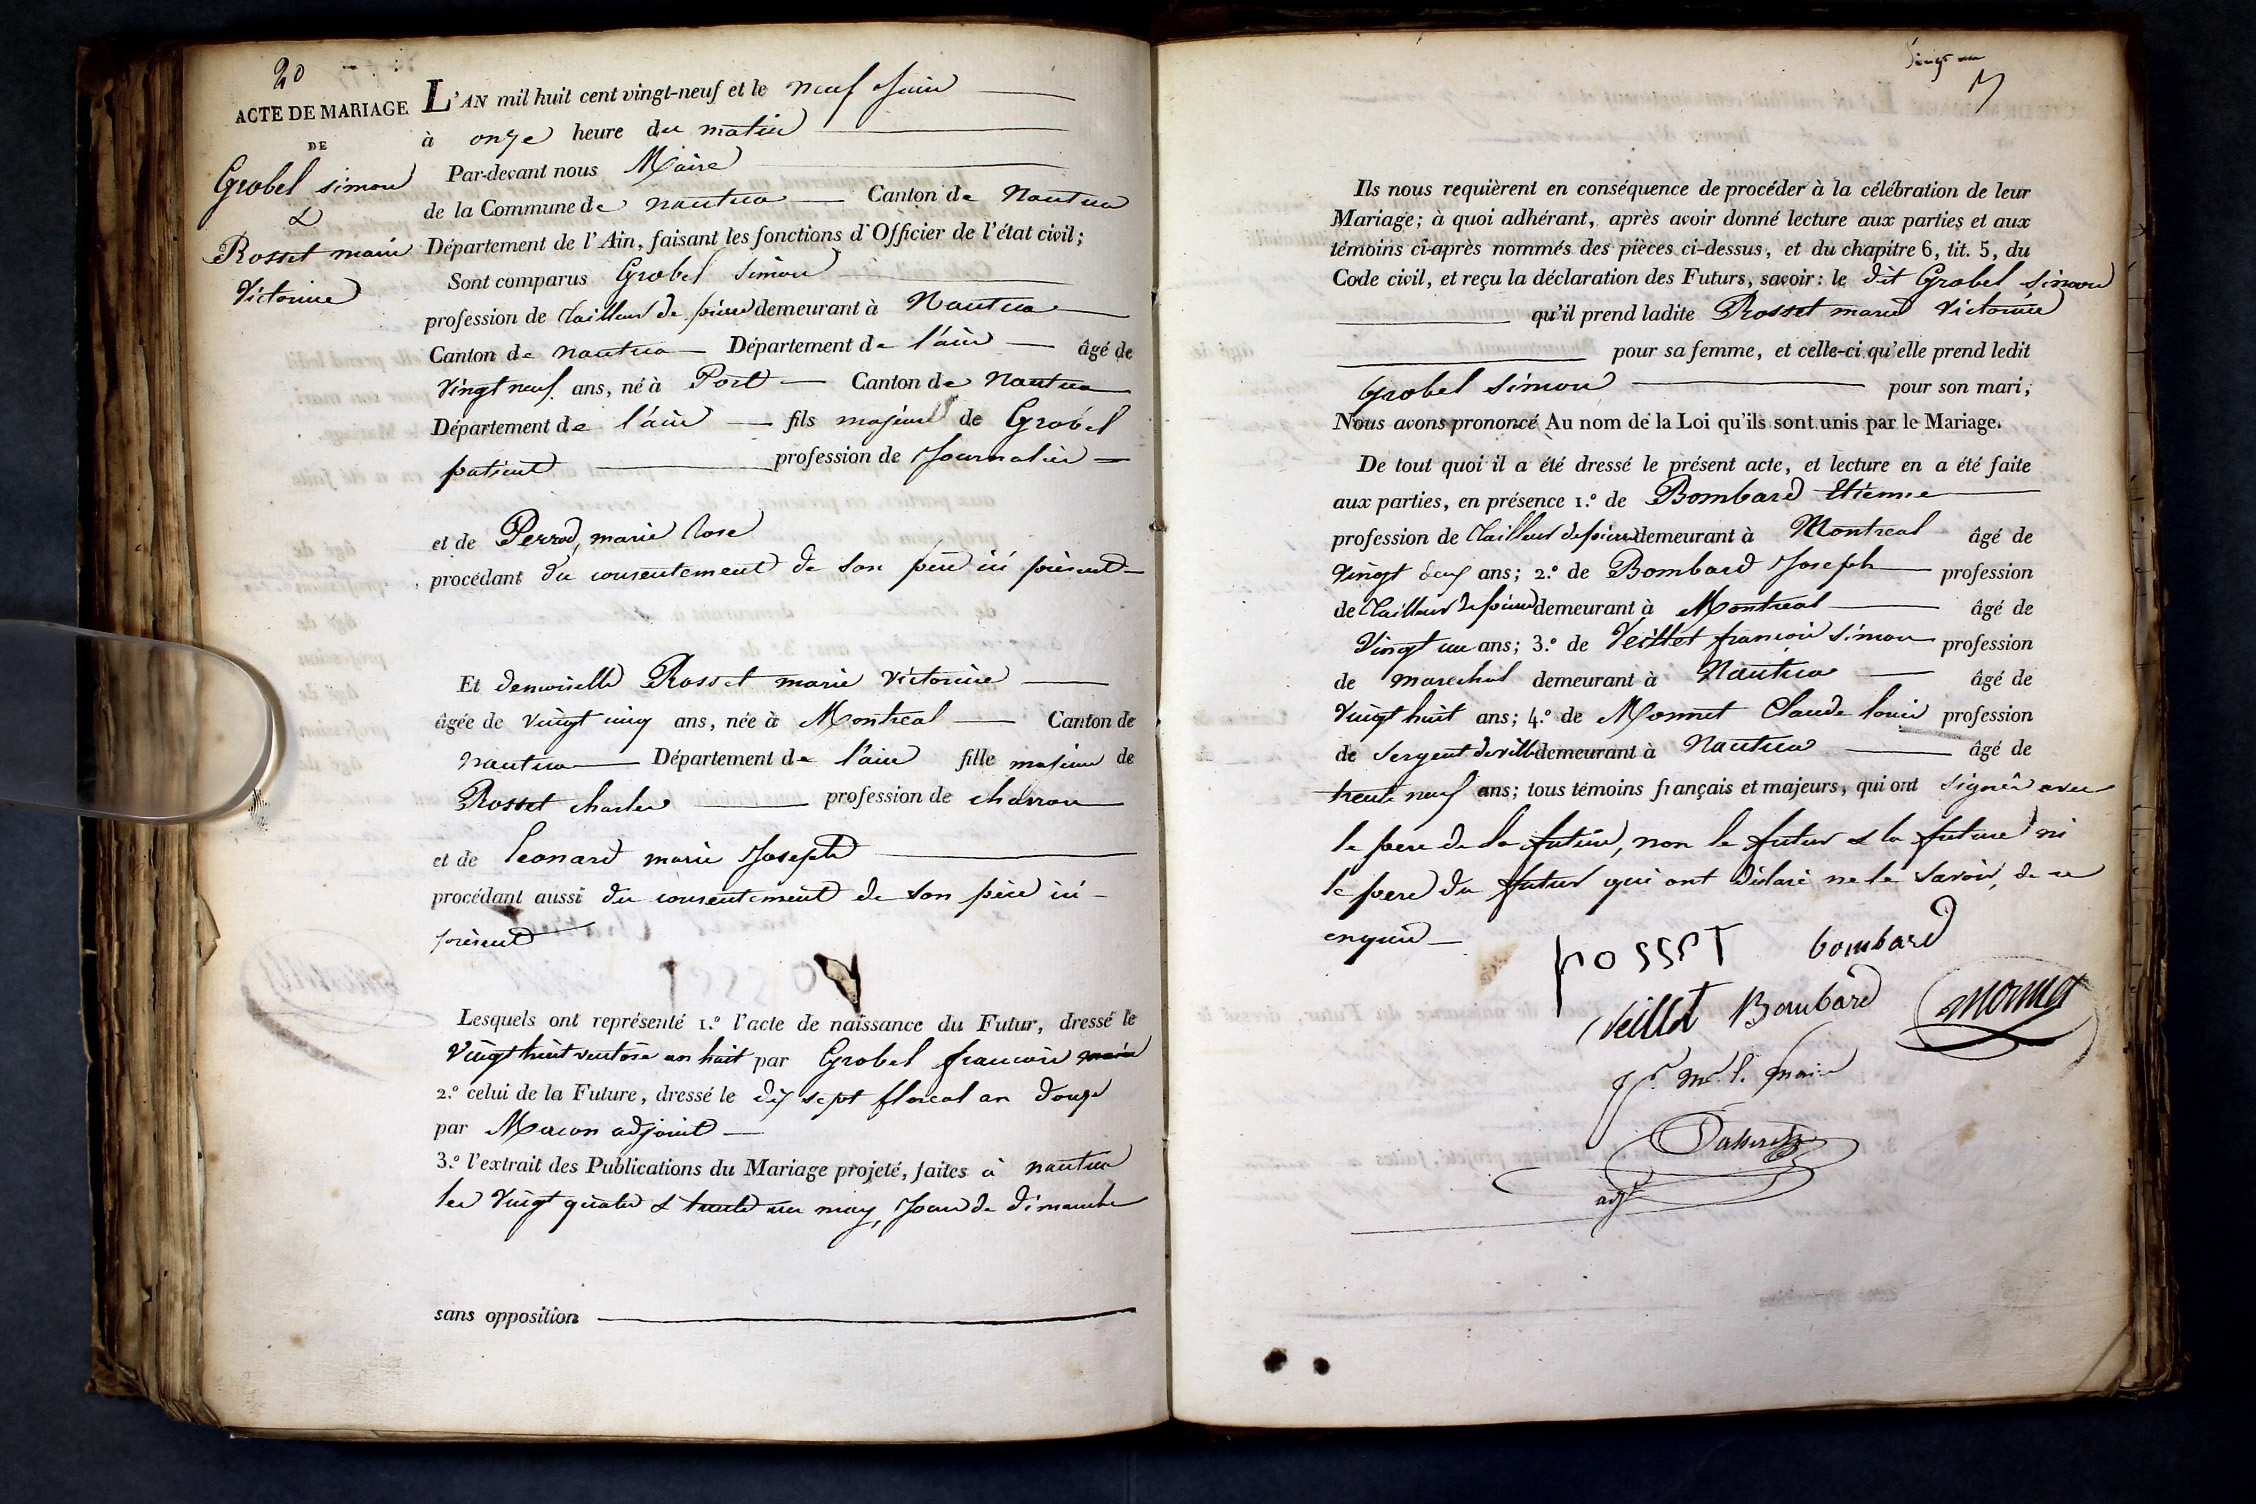 20
ACTE DE MARIAGE
DE
Grobel simon
&
Rosset marie
Victorine
L'AN mil huit cent vingt-neuf et le neuf Juin
à onze heure du matin
Par-devant nous Maire
de la Commune de nantua Canton de Nantua
Département de l'Ain, faisant les fonctions d'Officier de l'état civil;
Sont comparus Grobel Simon
profession de tailleur de pierre demeurant à Nantua
Canton de nantua Département de l'ain âgé de
vingt neuf ans, né à Port Canton de Nantua
Département de l'ain fils majeur de Grobel
patient profession de Journalier
et de Perrod, marie Rose
procédant du consentement de son père ici présent
Et demoiselle Rosset marie victorine
âgée de vingt cinq ans, née à Montreal Canton de
nantua Département de l'ain fille majeure de
Rosset charles profession de charron
et de Leonard marie Joseph
procédant aussi du consentement de son père ici
présent
Lesquels ont représenté 1.º l'acte de naissance du Futur, dressé le
vingt huit ventose an huit par Grobel francois maire
2.º celui de la Future, dressé le dix sept floreal an douze
par Macon adjoint
3.º l'extrait des Publications du Mariage projeté, faites à nantua
les vingt quatre & trente un may, Jour de dimanche
sans opposition
vingt un
Ils nous requièrent en conséquence de procéder à la célébration de leur
Mariage; à quoi adhérant, après avoir donné lecture aux parties et aux
témoins ci-après nommés des pièces ci-dessus, et du chapitre 6, tit. 5, du
Code civil, et reçu la déclaration des Futurs, savoir: le dit Grobel Simon
qu'il prend ladite Rosset marie Victorine
pour sa femme, et celle-ci qu'elle prend ledit
Grobel Simon pour son mari;
Nous avons prononcé Au nom de la Loi qu'ils sont unis par le Mariage.
De tout quoi il a été dressé le présent acte, et lecture en a été faite
aux parties, en présence 1.º de Bombard Etienne
profession de tailleur de pierre demeurant à Montreal âgé de
vingt deux ans; 2.º de Bombard Joseph profession
de tailleur de pierre demeurant à Montreal âgé de
vingt un ans; 3.º de Veillet françois simon profession
de marechal demeurant à Nantua âgé de
vingt huit ans; 4.º de Monnet Claude louis profession
de sergent de ville demeurant à Nantua âgé de
trente neuf ans; tous témoins français et majeurs, qui ont signés avec
le pere de la future, non le futur & la future ni
le pere du futur qui ont déclaré ne le savoir, de ce
enquis
ROSSET bombard
Veillet Bombard Monnet
maire
adjt